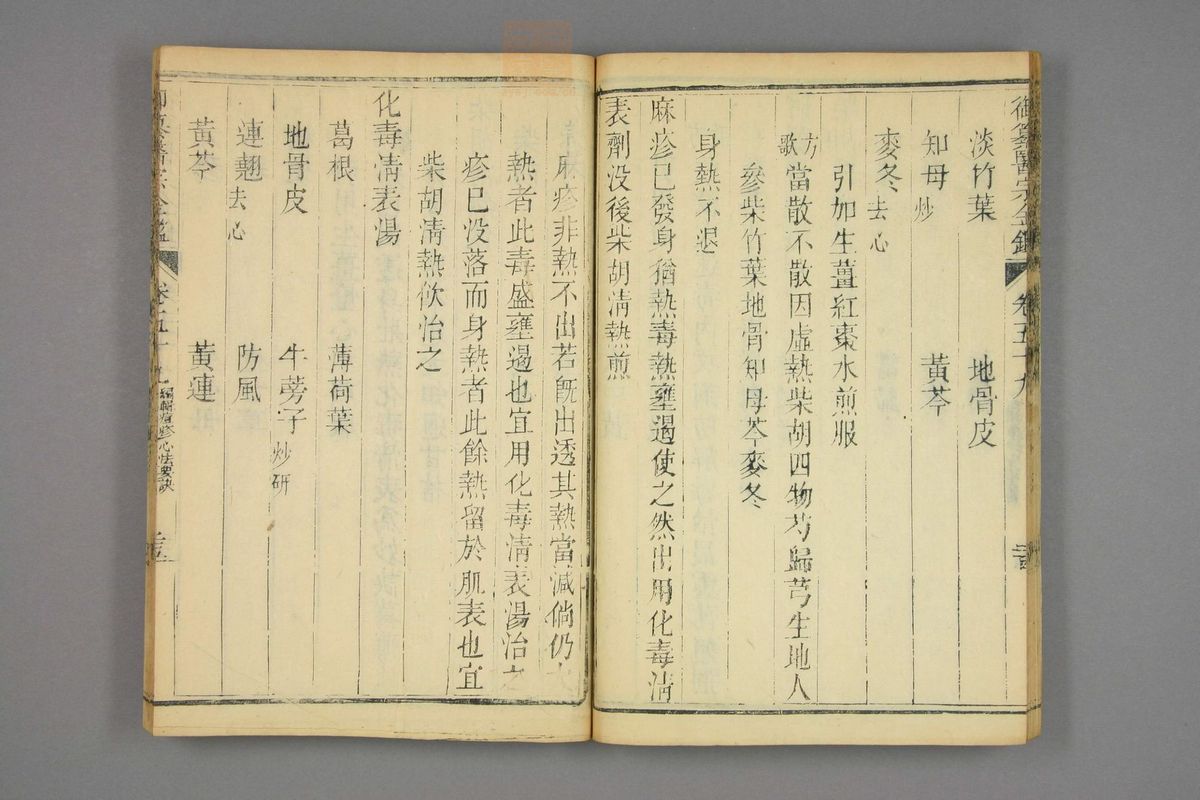 御纂醫宗金鑑 卷五十九
淡竹葉 地骨皮
知母炒 黃芩
麥冬去心
引加生薑紅棗水煎服
方歌 當散不散因虛熱柴胡四物芍歸芎生地人
參柴竹葉地骨知母芩麥冬
身熱不退
麻疹已發身猶熱毒熱壅遏使之然出用化毒清
表劑沒後柴胡清熱煎
麻疹非熱不出若旣出透其熱當減倘仍大
熱者此毒盛壅遏也宜用化毒清表湯治之
疹已沒落而身熱者此餘熱留於肌表也宜
柴胡清熱飲治之
化毒清表湯
葛根 薄荷葉
地骨皮 牛蒡子炒研
連翹去心 防風
黃芩 黃連
編輯痘疹心法要訣